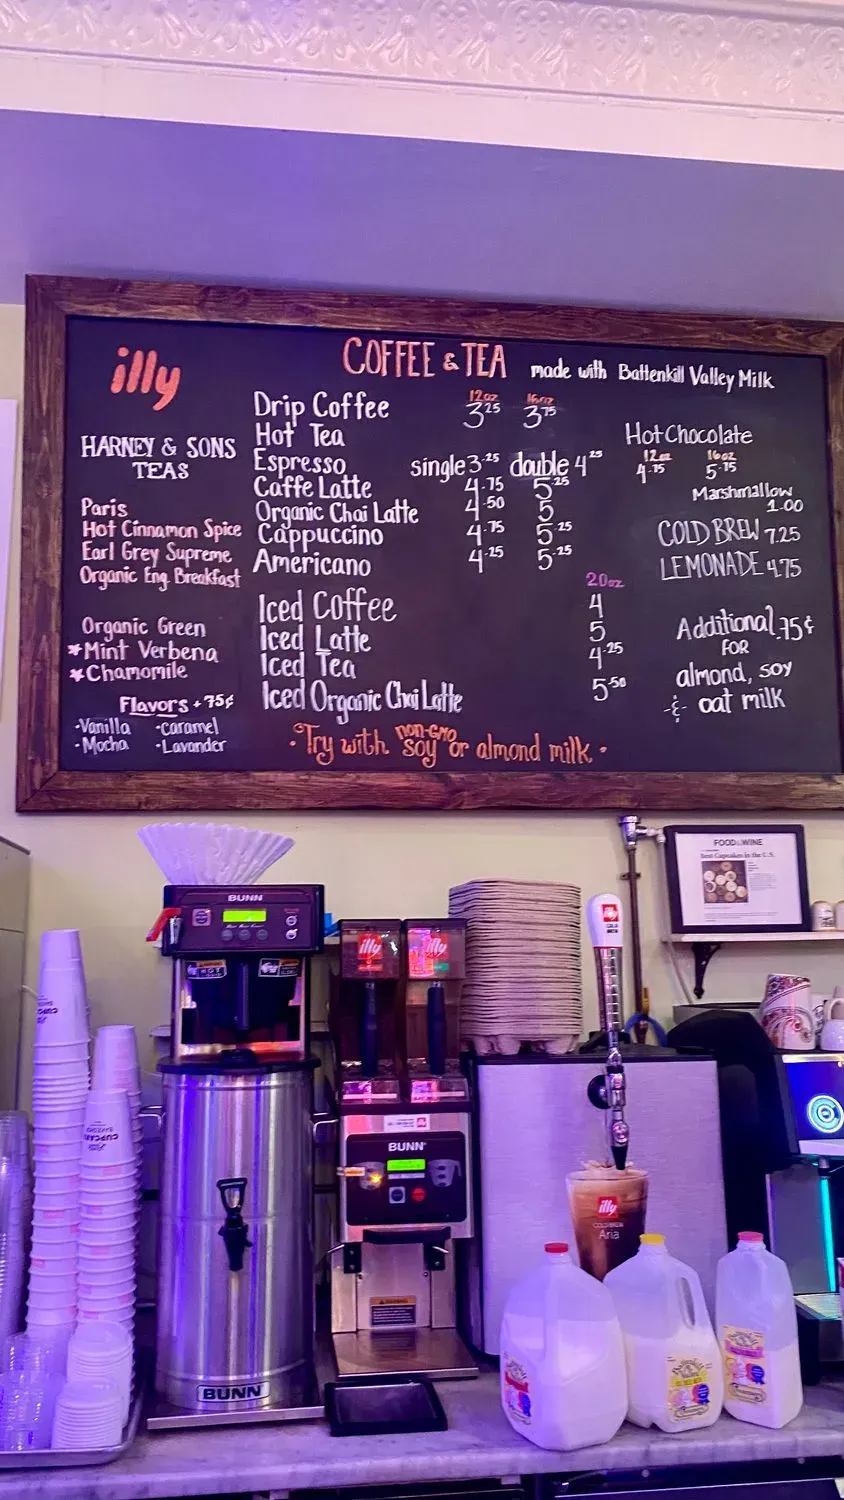 illy
COFFEE & TEA made with Battenkill Valley Milk
HARNEY & SONS
TEAS
Paris
Hot Cinnamon Spice
Earl Grey Supreme
Organic Eng. Breakfast
Organic Green
*Mint Verbena
*Chamomile
Flavors + 75¢
•Vanilla •caramel
•Mocha •Lavander
12oz 16oz
Drip Coffee 3.25 3.75
Hot Tea
Espresso single 3.25 double 4.25
Caffe Latte 4.75 5.25
Organic Chai Latte 4.50 5
Cappuccino 4.75 5.25
Americano 4.25 5.25
20oz
Iced Coffee 4
Iced Latte 5
Iced Tea 4.25
Iced Organic Chai Latte 5.50
•Try with non-GMO soy or almond milk•
Hot Chocolate
12oz 16oz
4.75 5.75
Marshmallow
1.00
COLD BREW 7.25
LEMONADE 4.75
Additional .75¢
FOR
almond, soy
-&- oat milk
FOOD & WINE
Best Cupcakes in the U.S.
BUNN
illy
illy
BUNN
BUNN
illy
illy
COLD BREW
Aria
CUPCAKE